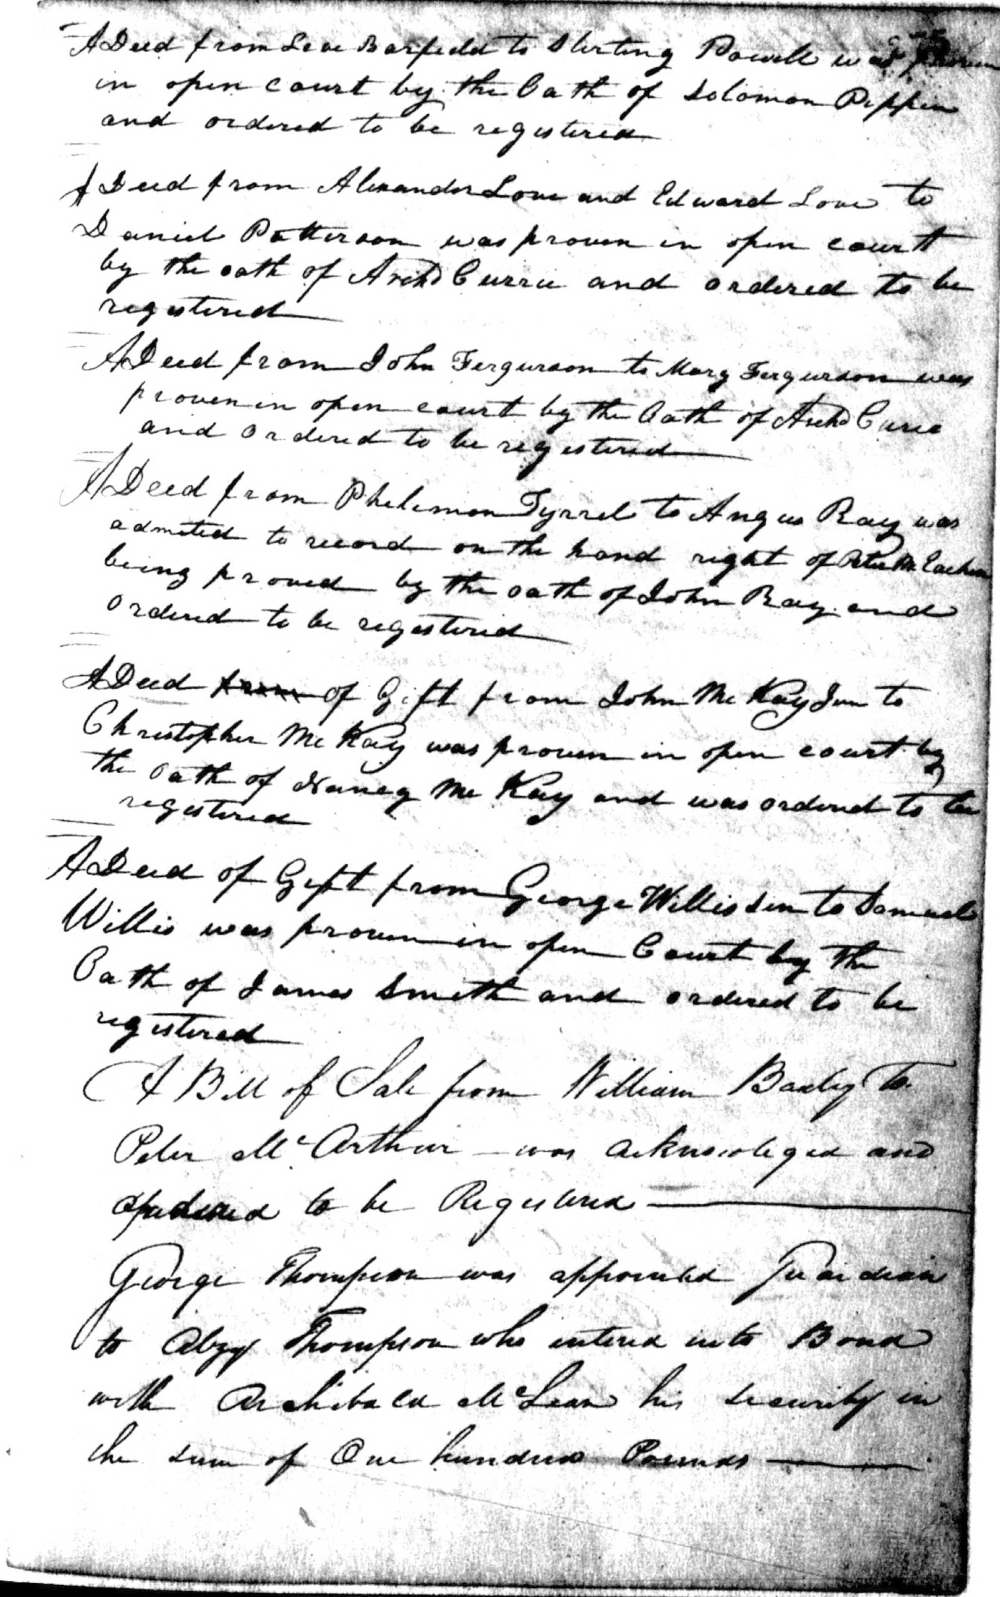 A Deed from Barfield to Sterling Powell was proven
in open court by the Oath of Solomon Pippin
and ordered to be registered
A Deed from Alexander Love and Edward Love to
Daniel Patterson was proven in open court
by the oath of Archd Currie and ordered to be
registered
A Deed from John Ferguson to Mary Ferguson was
proven in open court by the Oath of Archd Currie
and ordered to be registered
A Deed from Philemon Tyrrel to Angus Ray was
admited to record on the hand right of Peter McEachern
being proved by the oath of John Ray and
ordered to be registered
A Deed from of Gift from John McKay Jun to
Christopher McKay was proven in open court by
the Oath of Nancy McKay and was ordered to be
registered
A Deed of Gift from George Willis Sen to Samuel
Willis was proven in open Court by the
Oath of James Smith and ordered to be
registered
A Bill of Sale from William Baxley to
Peter McArthur was acknowleged and
ordered to be Registered
George Thompson was appointed Guardian
to Thompson who entered into Bond
with Archibald McLean his security in
the sum of One hundred Pounds